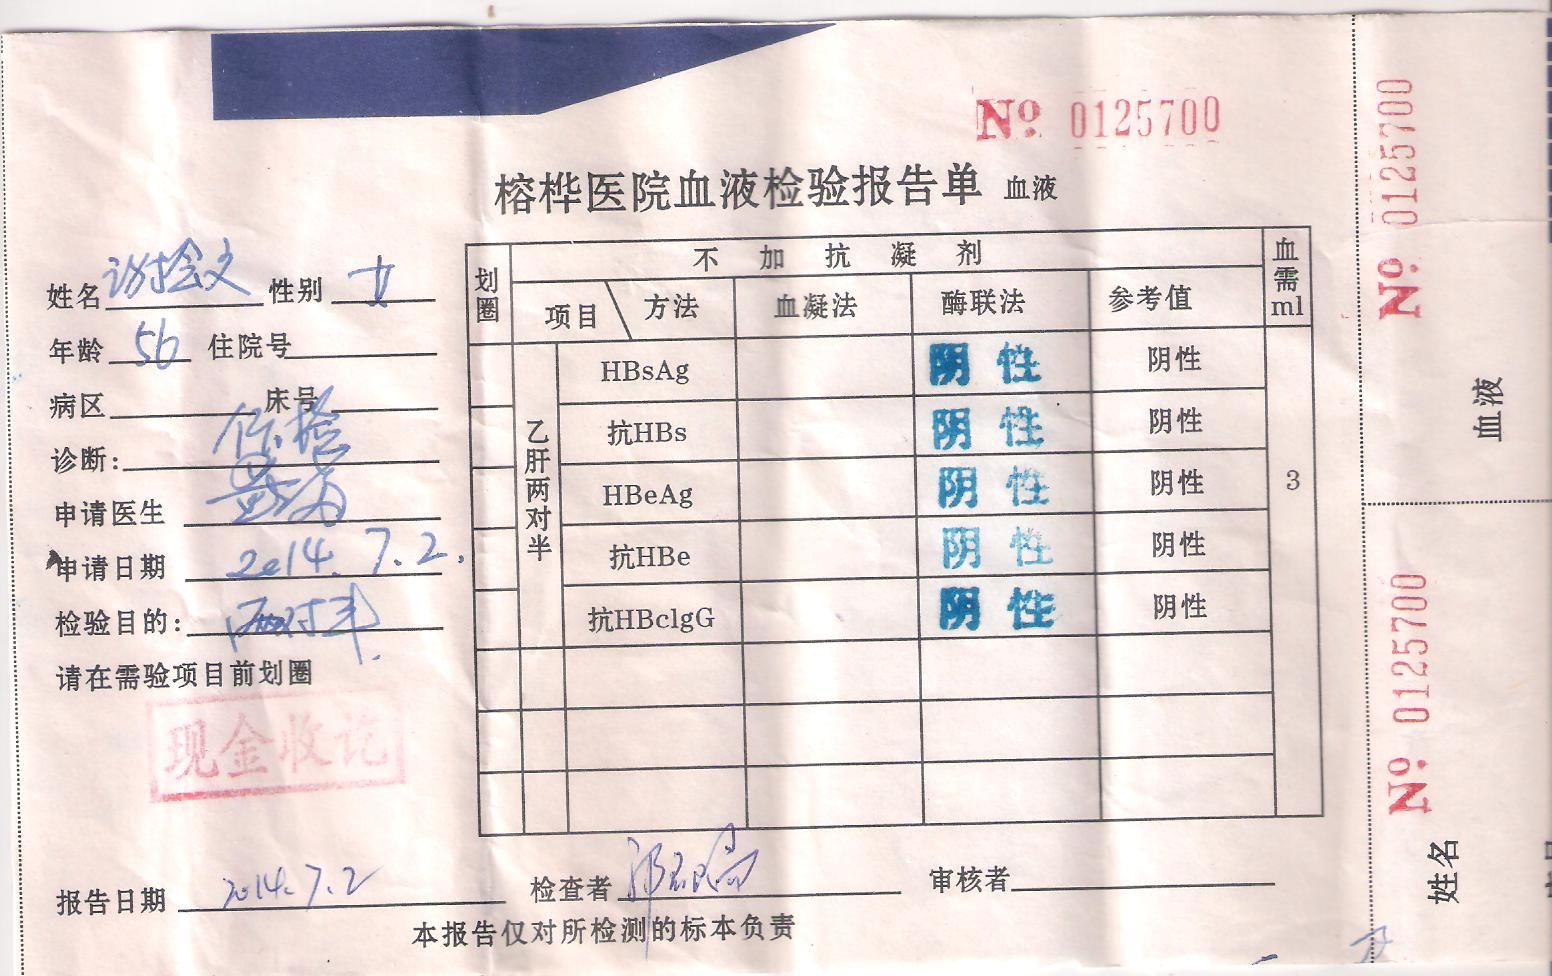 No. 0125700
榕桦医院血液检验报告单 血液
姓名 性别 女
年龄 56 住院号
病区 床号
诊断: 体检
申请医生
申请日期 2014.7.2.
检验目的: 两对半
请在需验项目前划圈
现金收讫
划圈 不加抗凝剂 血需ml
项目 方法 血凝法 酶联法 参考值
乙肝两对半
HBsAg 阴性 阴性
抗HBs 阴性 阴性
HBeAg 阴性 阴性 3
抗HBe 阴性 阴性
抗HBclgG 阴性 阴性
报告日期 2014.7.2 检查者 审核者
本报告仅对所检测的标本负责
No. 0125700
血液
No. 0125700
姓名